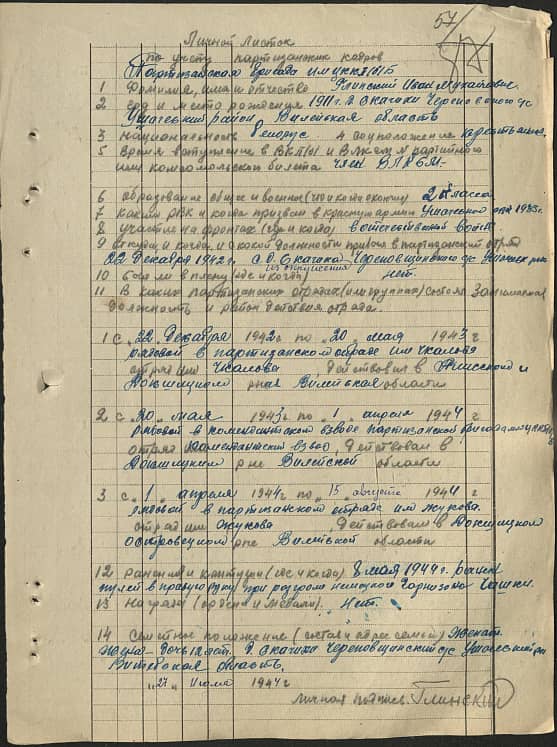 57
Личной Листок
по учету партизанских кадров
Партизанская Бригада им ЦККП(б)Б
1 Фамилия, имя и отчество Глинский Иван Михайлович
2 год и место рождения 1911 г. д. Скачихи Череповского с/с
Ушачский район Вилейская область
3 Национальность белорус. 4 Соцположение крестьянин.
5 Время вступления в ВКП(б) и ВЛКСМ № партийного
или комсомольского билета член ВЛКСМ.
6 образование общее и военное (что и когда окончил) 2 класса
7 каким РВК и когда призван в красную армию Ушачский 1933г.
8 участие на фронтах (где и когда) в отечественной войне
9 откуда и когда, и с какой должности прибыл в партизанский отряд
22 Декабря 1942 г. с д. Скачиха Череповщинского с/с Ушачск р-на
из окружения
10 был ли в плену (где и когда) нет.
11 В каких партизанских отрядах (или группах) состоял Занимаемая
должность и район действия отряда.
1 с „22„ Декабря 1942 г по „20„ мая 1943 г
рядовой в партизанском отряде им Чкалова
отряд им Чкалова, действовал в и
Докшицком р-не Вилейской области
2 с „20„ мая 1943г по „1„ апреля 1944 г
рядовой в комендантском взводе партизанской бригады им ЦККП(б)Б
отряд Комендантский взвод, Действовал в
Докшицком р-не Вилейской области
3 с „1„ апреля 1944г по „15„ августа 1944 г
рядовой в партизанском отряде им Жукова.
отряд им Жукова, действовал в Докшицком
островецком р-не Вилейской области
12 Ранения и контузии (где и когда) 8 мая 1944 г. ранен
пулей в правую руку при разгроме немецкого гарнизона Чашки.
13 Награды (ордена и медали). Нет.
14 Семейное положение (состав и адрес семьи) Женат.
Жена Дочь д. Скачиха Череповщинский с/с Ушачский р-н
Витебская область,
„27„ Июля 1944 г
личная подпись. Глинский